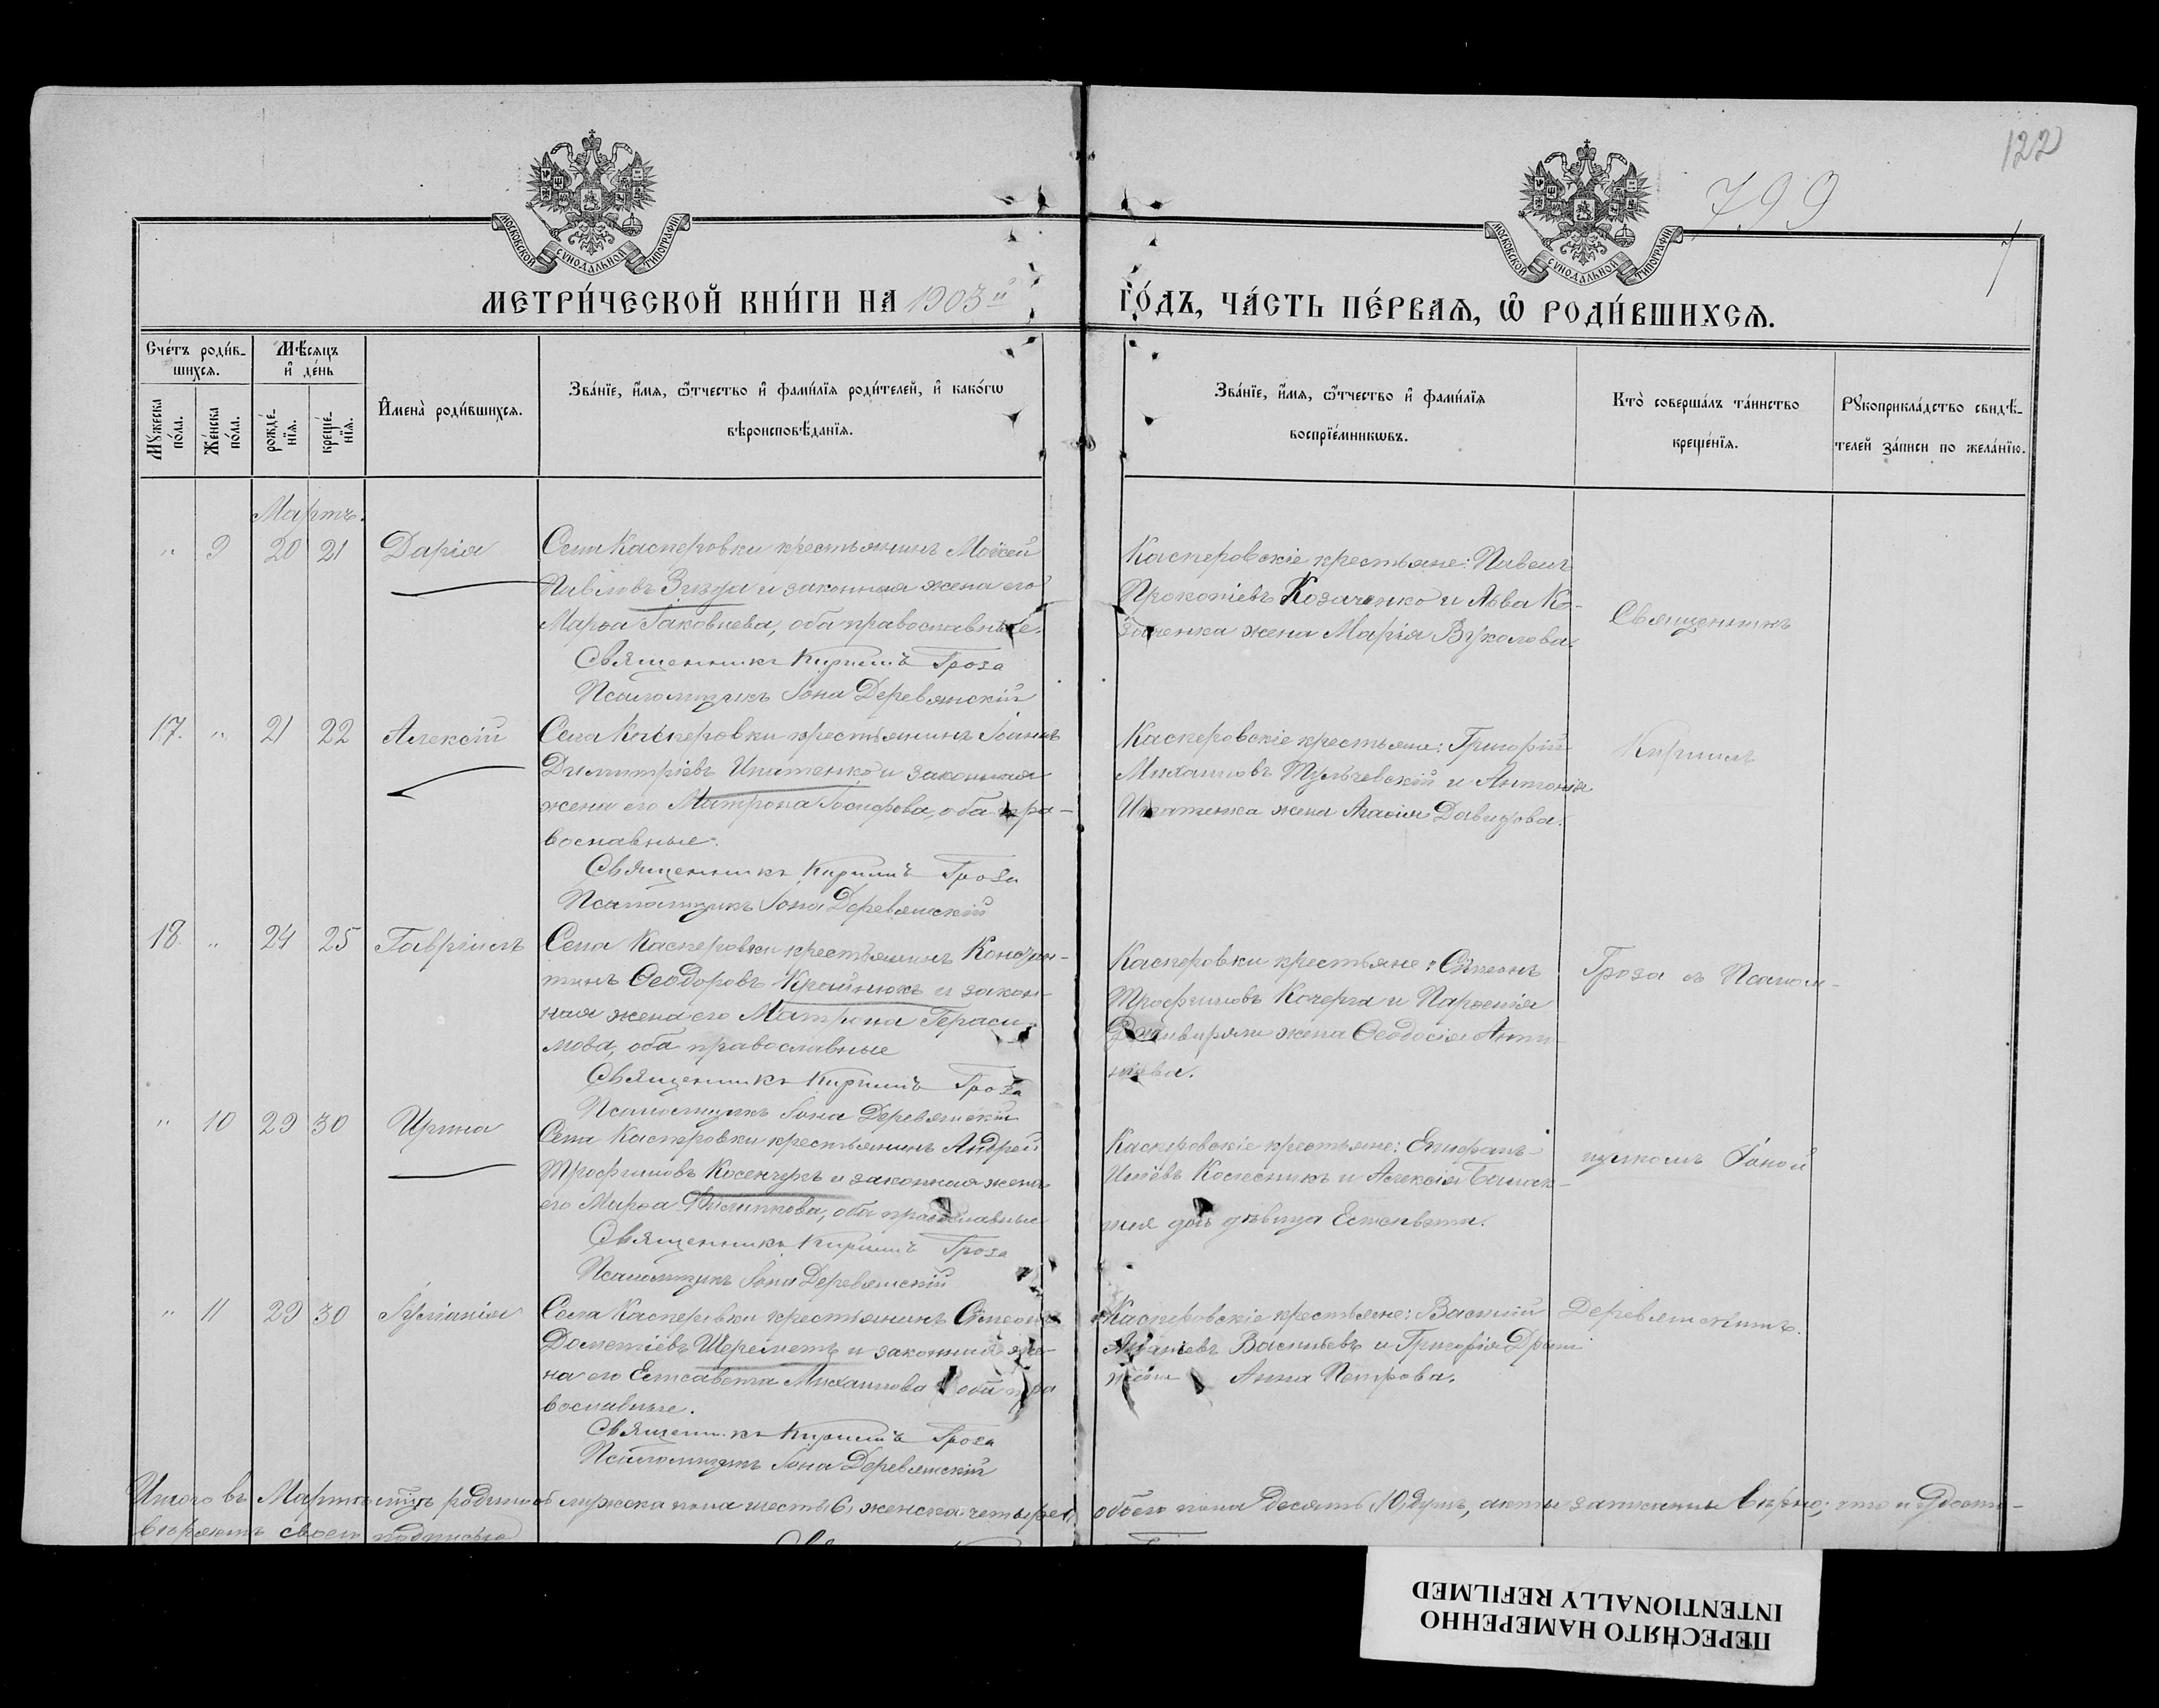 122
799
7
МОСКОВСКОЙ СѴНОДАЛЬНОЙ ТИПОГРАФІИ
МОСКОВСКОЙ СѴНОДАЛЬНОЙ ТИПОГРАФІИ
МЕТРИ́ЧЕСКОЙ КНИ́ГИ НА 1903й
ГО́ДЪ, ЧА́СТЬ ПЕ́РВАѦ, Ѡ҆ РОДИ́ВШИХСѦ.
Сче́тъ роди́в-
шихсѧ.
Мѣ́сѧцъ
и҆ де́нь
Мꙋ́жеска
по́ла.
Же́нска
по́ла.
рожде́-
нїѧ.
креще́-
нїѧ.
И҆мена̀ роди́вшихсѧ.
Зва́нїе, и҆́мѧ, ѻ҆́тчество и҆ фами́лїѧ роди́телей, и҆ како́гѡ
вѣроисповѣ́данїѧ.
Зва́нїе, и҆́мѧ, ѻ҆́тчество и҆ фами́лїѧ
воспрїе́мникѡвъ.
Кто̀ соверша́лъ та́инство
креще́нїѧ.
Рꙋкоприкла́дство свидѣ́-
телей за́писи по жела́нїю.
Мартъ.
" 9 20 21 Дарія
Села Касперовки крестьянинъ Моисей
Павловъ и законная жена его
Марѳа Іаковлева, оба православные.
Священникъ Кириллъ Гроза
Псаломщикъ Іона Деревянскій
Касперовскіе крестьяне: Павелъ
Прокопіевъ Козаченко и Льва Ко-
заченка жена Марія Вуколова.
Священникъ
17. " 21 22 Алексій
Села Касперовки крестьянинъ Іоаннъ
Димитріевъ Игнатенко и законная
жена его Матрона Іосифова, оба пра-
вославные.
Священникъ Кириллъ Гроза
Псаломщикъ Іона Деревянскій
Касперовскіе крестьяне: Григорій
Михаиловъ Тульчевскій и Антонія
Игнатенка жена Давидова.
Кирилъ
18. " 24 25 Гавріилъ
Села Касперовки крестьянинъ Констан-
тинъ Ѳеодоровъ Крайнюкъ и закон-
ная жена его Матрона Гераси-
мова, оба православные
Священникъ Кириллъ Гроза
Псаломщикъ Іона Деревянскій
Касперовки крестьяне: Сѷмеонъ
Трофимовъ Кочерга и Парѳенія
жена Ѳеодосія Анто-
ніева.
Гроза съ Псалом-
" 10 29 30 Ирина
Села Касперовки крестьянинъ Андрей
Трофимовъ Косенчукъ и законная жена
его Марѳа Филиппова, оба православные
Священникъ Кириллъ Гроза
Псаломщикъ Іона Деревянскій
Касперовскіе крестьяне: Епифанъ
Колесникъ и Алексія
дочь дѣвица Елисавета.
щикомъ Іоной
" 11 29 30 Іуліанія
Села Касперовки крестьянинъ Сѷмеонъ
Дометіевъ Шереметъ и законная же-
на его Елисавета Михаилова оба пра
вославные.
Священникъ Кириллъ Гроза
Псаломщикъ Іона Деревянскій
Касперовскіе крестьяне: Василій
Ананіевъ Васильевъ и Григорія
Анна Петрова.
Деревянскимъ.
Итого въ Мартѣ мѣсяцѣ родилось мужеска пола шесть, 6, женска четыре, обоего пола десять, 10, душъ, акты записаны вѣрно; что и удосто-
вѣряемъ своею подписью
ПЕРЕСНЯТО НАМЕРЕННО
INTENTIONALLY REFILMED